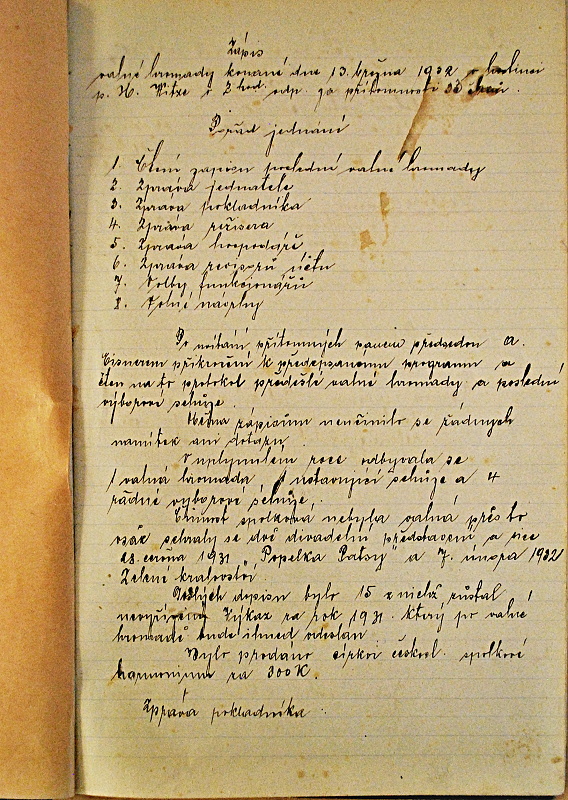 Zápis
valné hromady konané dne 13. března 1932 v hostinci
p. H. Vitze v 2 hod. odp. za přítomnosti 33 členů.
Pořad jednání
1. Čtení zápisu poslední valné hromady
2. Zpráva jednatele
3. Zpráva pokladníka
4. Zpráva režisera
5. Zpráva hospodáře
6. Zpráva revisorů účtu
7. Volby funkcionářů
8. Volné návrhy
Po uvítání přítomných panem předsedou A.
Eisnerem přikročení k předepsanému programu a
čten na to protokol předešlé valné hromady a poslední
výborové schůze.
zápisům neučinilo se žádných
namítek ani dotazu.
V uplynulém roce odbyvala se
1 valná hromada, 1 ustavující schůze a 4
řádné výborové schůze.
Činnost spolková nebyla valná přes to
však sehrály se dvě divadelní představení a sice
28. června 1931 "Popelka Patsy" a 7. února 1932
Zelené království.
Došlých dopisu bylo 15 z nichž zůstal
nevyřízený Výkaz za rok 1931. který po valné
hromadě bude ihned odeslán.
Bylo prodáno církvi českosl. spolkové
harmonium za 300 K.
Zpráva pokladníka: